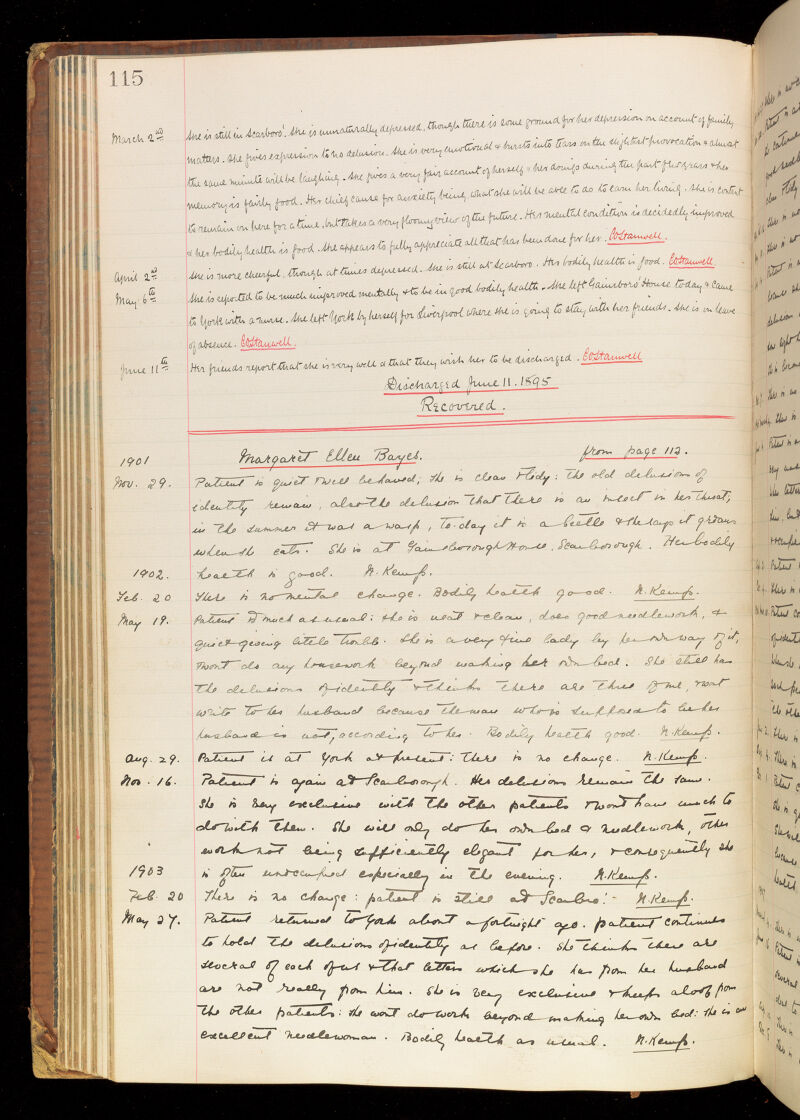 115
March 2nd She is still in Scarboro'. She is unnaturally depressed, though there is some ground for her depression on account of family
matters. She gives expression to no delusion. She is very emotional & bursts into tears on the slightest provocation & almost
the same minute will be laughing. She gives a very fair account of herself & her doings during the past few years & her
memory is fairly good. Her chief cause for anxiety being what she will be able to do to earn her living. She is content
to remain on here for a time, but takes a very gloomy view of the future. Her mental condition is decidedly improved
& her bodily health is good. She appears to fully appreciate all that has been done for her. COStanwell.
April 2nd She is more cheerful, though at times depressed. She is still at Scarboro. Her bodily health is good. COStanwell.
May 6th She is reported to be much improved mentally & to be in good bodily health. She left Gainsboro' House today & came
to York with a nurse. She left York by herself for Liverpool where she is going to stay with her friends. She is on leave
of absence. COStanwell.
June 11th Her friends report that she is very well & that they wish her to be discharged. COStanwell
Discharged June 11. 1895
Recovered.
1901 Margaret Ellen Bayes. from page 112.
Nov. 29. Patient is quiet & well behaved; she is clean & tidy: the old delusions of
identity remain, also the delusion that there is an insect in her throat,
in the summer it was a wasp, to-day it is a beetle & she says it groans
when she eats. She is at Gainsborough House, Scarborough. Her bodily
1902. health is good. N. Kemp.
Feb. 20 There is no mental change. Bodily health good. N. Kemp.
May 19. Patient is much as usual: she is neat & clean, does good needlework, &
quiet giving little trouble. She is a very fine lady by her own way of it,
& wont do any housework beyond making her own bed. She still has
the delusions of identity & thinks there are three of me, & wont
write to her husband because the man who is supposed to be her
husband is not, according to her. Bodily health good. N. Kemp.
Aug. 29. Patient is at York at present: there is no change. N. Kemp.
Nov. 16. Patient is again at Scarborough. Her delusions remain the same.
She is very exclusive with the other patients & wont have much to
do with them. She will only do her own bed & needlework, other
work not being sufficiently elegant for her, & consequently she
1903 is often unoccupied especially in the evening. N. Kemp.
Feb. 20 There is no change: patient is still at Scarbro'. N. Kemp.
May 27. Patient returned to York about a fortnight ago. Patient continues
to hold the delusions of identity as before. She thinks there are
several of each of us & that letters which she has from her husband
are not really from him. She is very exclusive & keeps aloof from
the other patients: she wont do work beyond making her own bed: she is an
excellent needlewoman. Bodily health as usual. N. Kemp.